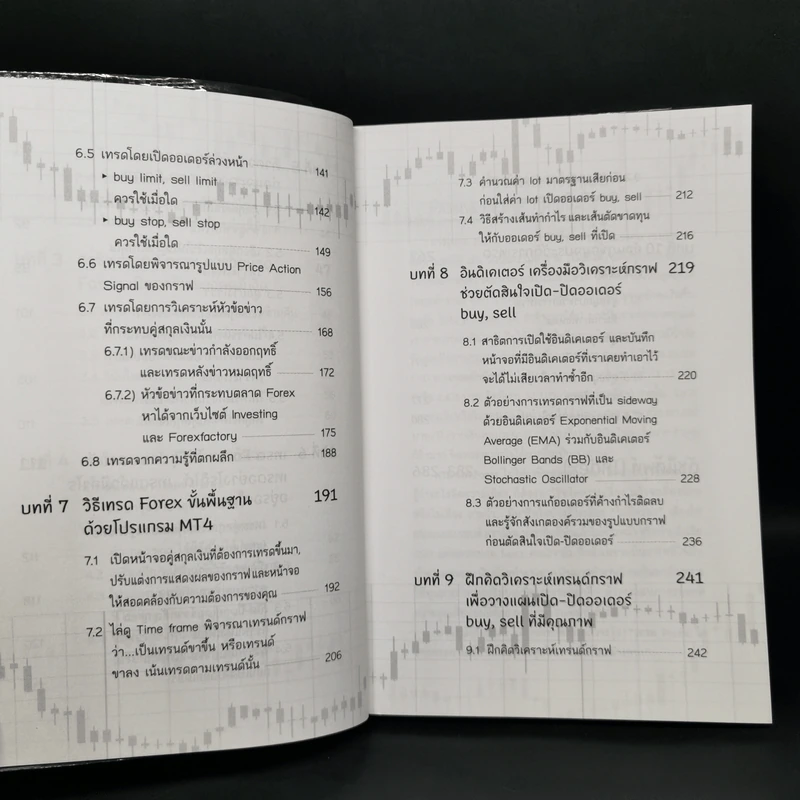 6.5 เทรดโดยเปิดออเดอร์ล่วงหน้า 141
▸ buy limit, sell limit
ควรใช้เมื่อใด 142
▸ buy stop, sell stop
ควรใช้เมื่อใด 149
6.6 เทรดโดยพิจารณารูปแบบ Price Action
Signal ของกราฟ 156
6.7 เทรดโดยการวิเคราะห์หัวข้อข่าว
ที่กระทบคู่สกุลเงินนั้น 168
6.7.1) เทรดขณะข่าวกำลังออกฤทธิ์
และเทรดหลังข่าวหมดฤทธิ์ 172
6.7.2) หัวข้อข่าวที่กระทบตลาด Forex
หาได้จากเว็บไซต์ Investing
และ Forexfactory 175
6.8 เทรดจากความรู้ที่ตกผลึก 188
บทที่ 7 วิธีเทรด Forex ขั้นพื้นฐาน 191
ด้วยโปรแกรม MT4
7.1 เปิดหน้าจอคู่สกุลเงินที่ต้องการเทรดขึ้นมา,
ปรับแต่งการแสดงผลของกราฟและหน้าจอ
ให้สอดคล้องกับความต้องการของคุณ 192
7.2 ไล่ดู Time frame พิจารณาเทรนด์กราฟ
ว่า...เป็นเทรนด์ขาขึ้น หรือเทรนด์
ขาลง เน้นเทรดตามเทรนด์นั้น 206
7.3 คำนวณค่า lot มาตรฐานเสียก่อน
ก่อนใส่ค่า lot เปิดออเดอร์ buy, sell 212
7.4 วิธีสร้างเส้นทำกำไร และเส้นตัดขาดทุน
ให้กับออเดอร์ buy, sell ที่เปิด 216
บทที่ 8 อินดิเคเตอร์ เครื่องมือวิเคราะห์กราฟ 219
ช่วยตัดสินใจเปิด-ปิดออเดอร์
buy, sell
8.1 สาธิตการเปิดใช้อินดิเคเตอร์ และบันทึก
หน้าจอที่มีอินดิเคเตอร์ที่เราเคยทำเอาไว้
จะได้ไม่เสียเวลาทำซ้ำอีก 220
8.2 ตัวอย่างการเทรดกราฟที่เป็น sideway
ด้วยอินดิเคเตอร์ Exponential Moving
Average (EMA) ร่วมกับอินดิเคเตอร์
Bollinger Bands (BB) และ
Stochastic Oscillator 228
8.3 ตัวอย่างการแก้ออเดอร์ที่ค้างกำไรติดลบ
และรู้จักสังเกตองค์รวมของรูปแบบกราฟ
ก่อนตัดสินใจเปิด-ปิดออเดอร์ 236
บทที่ 9 ฝึกคิดวิเคราะห์เทรนด์กราฟ 241
เพื่อวางแผนเปิด-ปิดออเดอร์
buy, sell ที่มีคุณภาพ
9.1 ฝึกคิดวิเคราะห์เทรนด์กราฟ 242